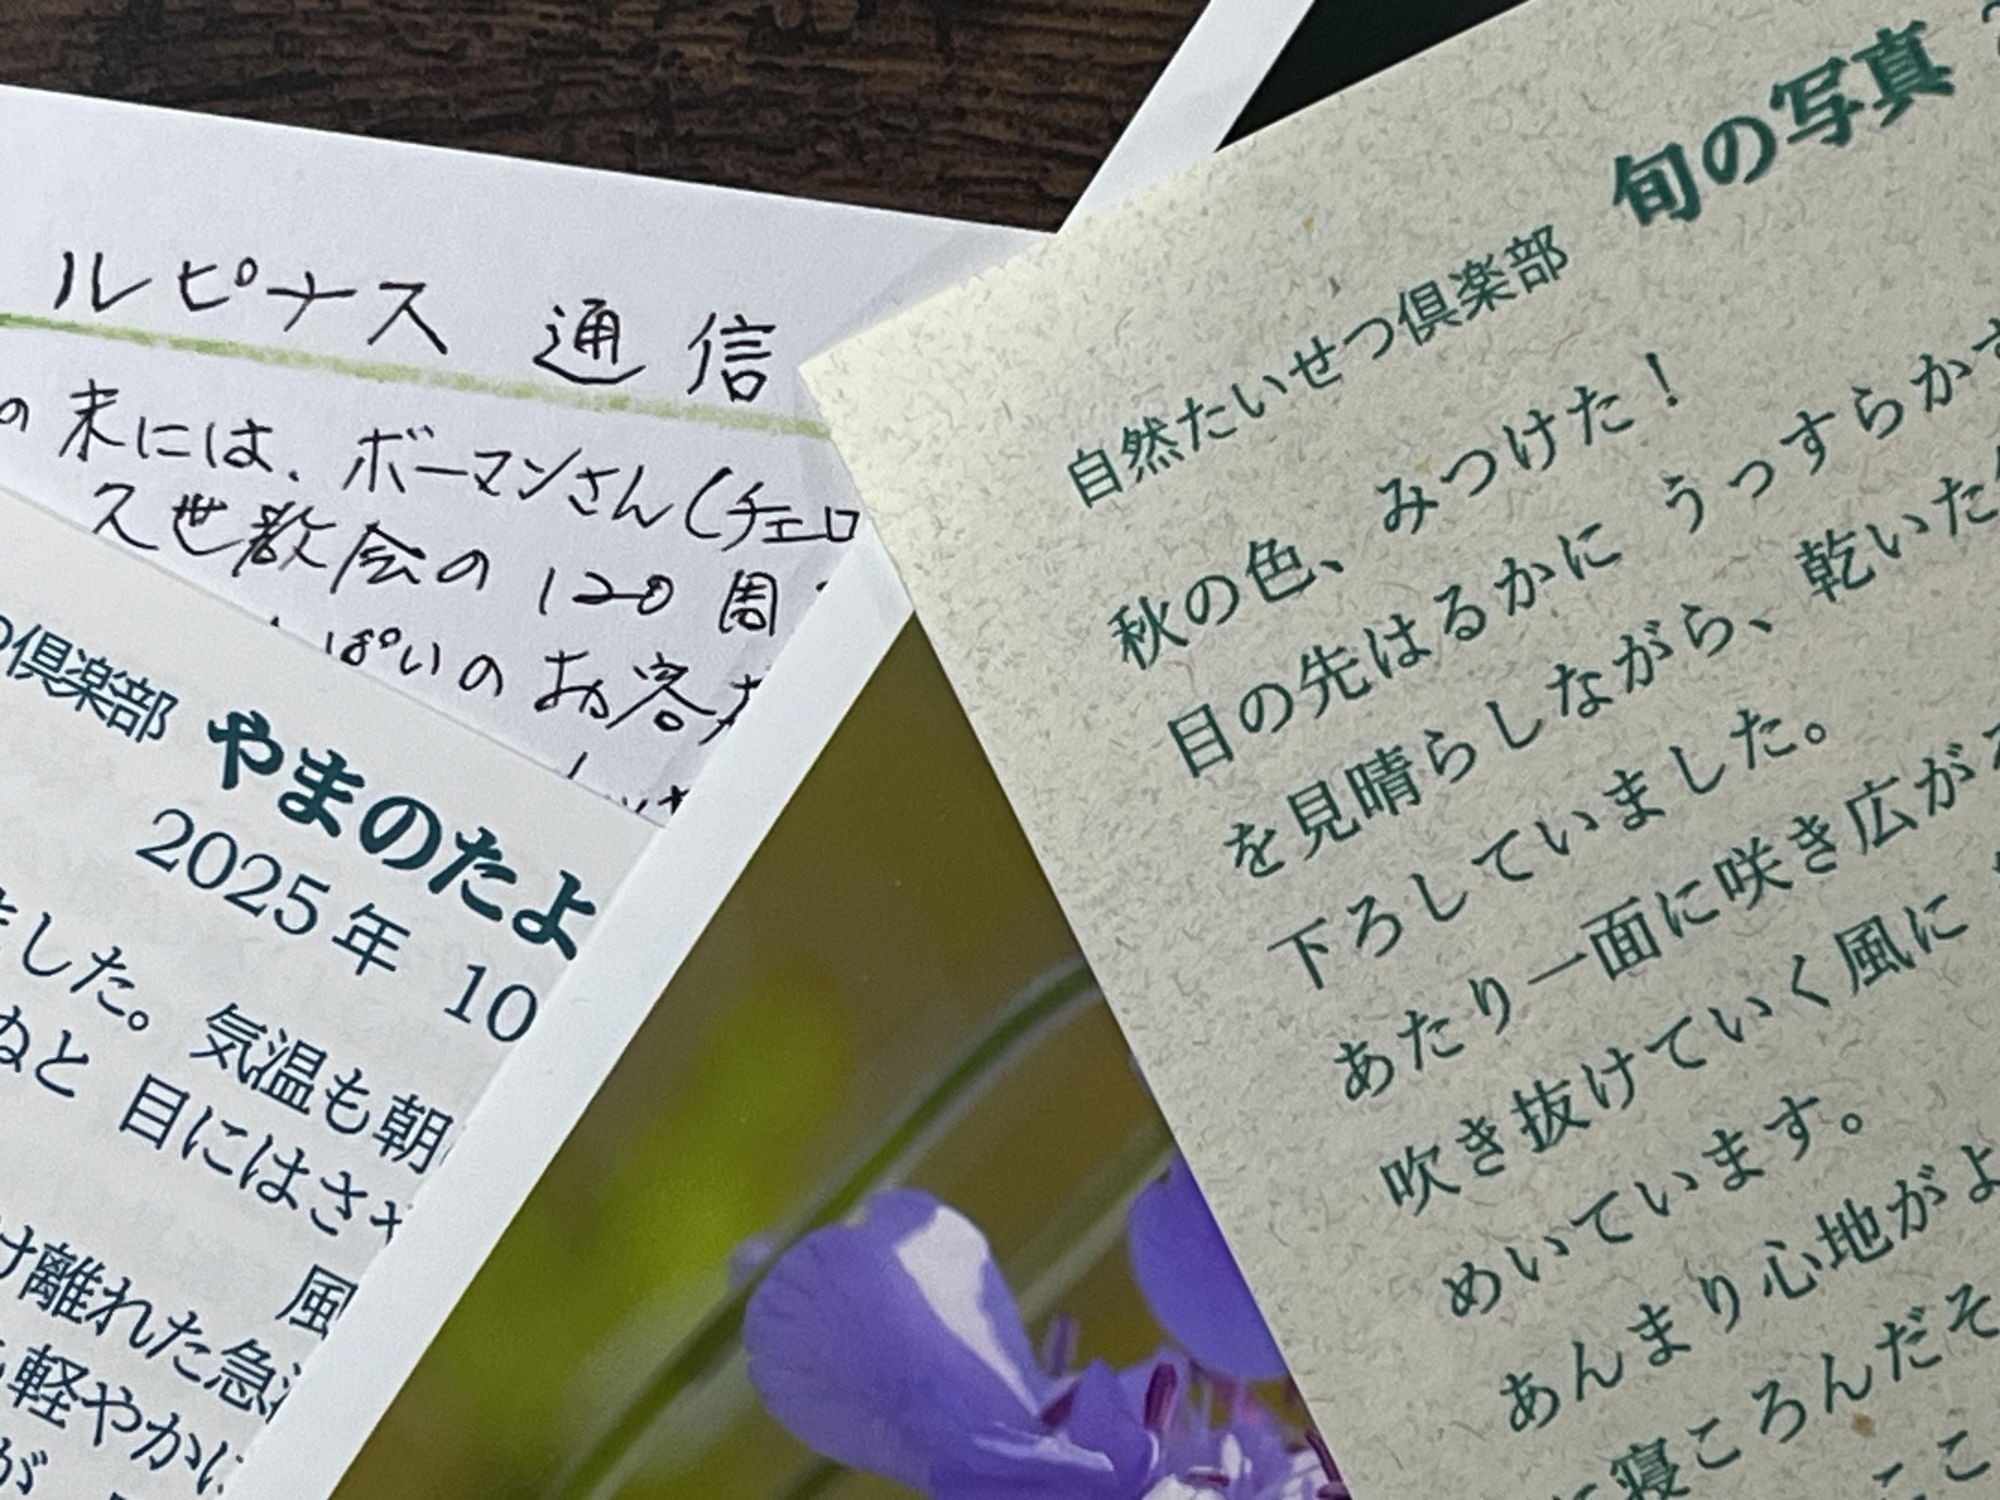 ルピナス 通信
の末には、ボーマンさん(チェロ
久世教会の 120 周
ぱいのお客
の倶楽部 やまのたよ
2025年 10
ました。気温も朝
ねと 目にはさや
風
け離れた急
軽やかに
が
自然たいせつ倶楽部 旬の写真
秋の色、みつけた!
目の先はるかに うっすらかす
を見晴らしながら、乾いた
下ろしていました。
あたり一面に咲き広が
吹き抜けていく風に
めいています。
あんまり心地がよ
に寝ころんだそ
ここ